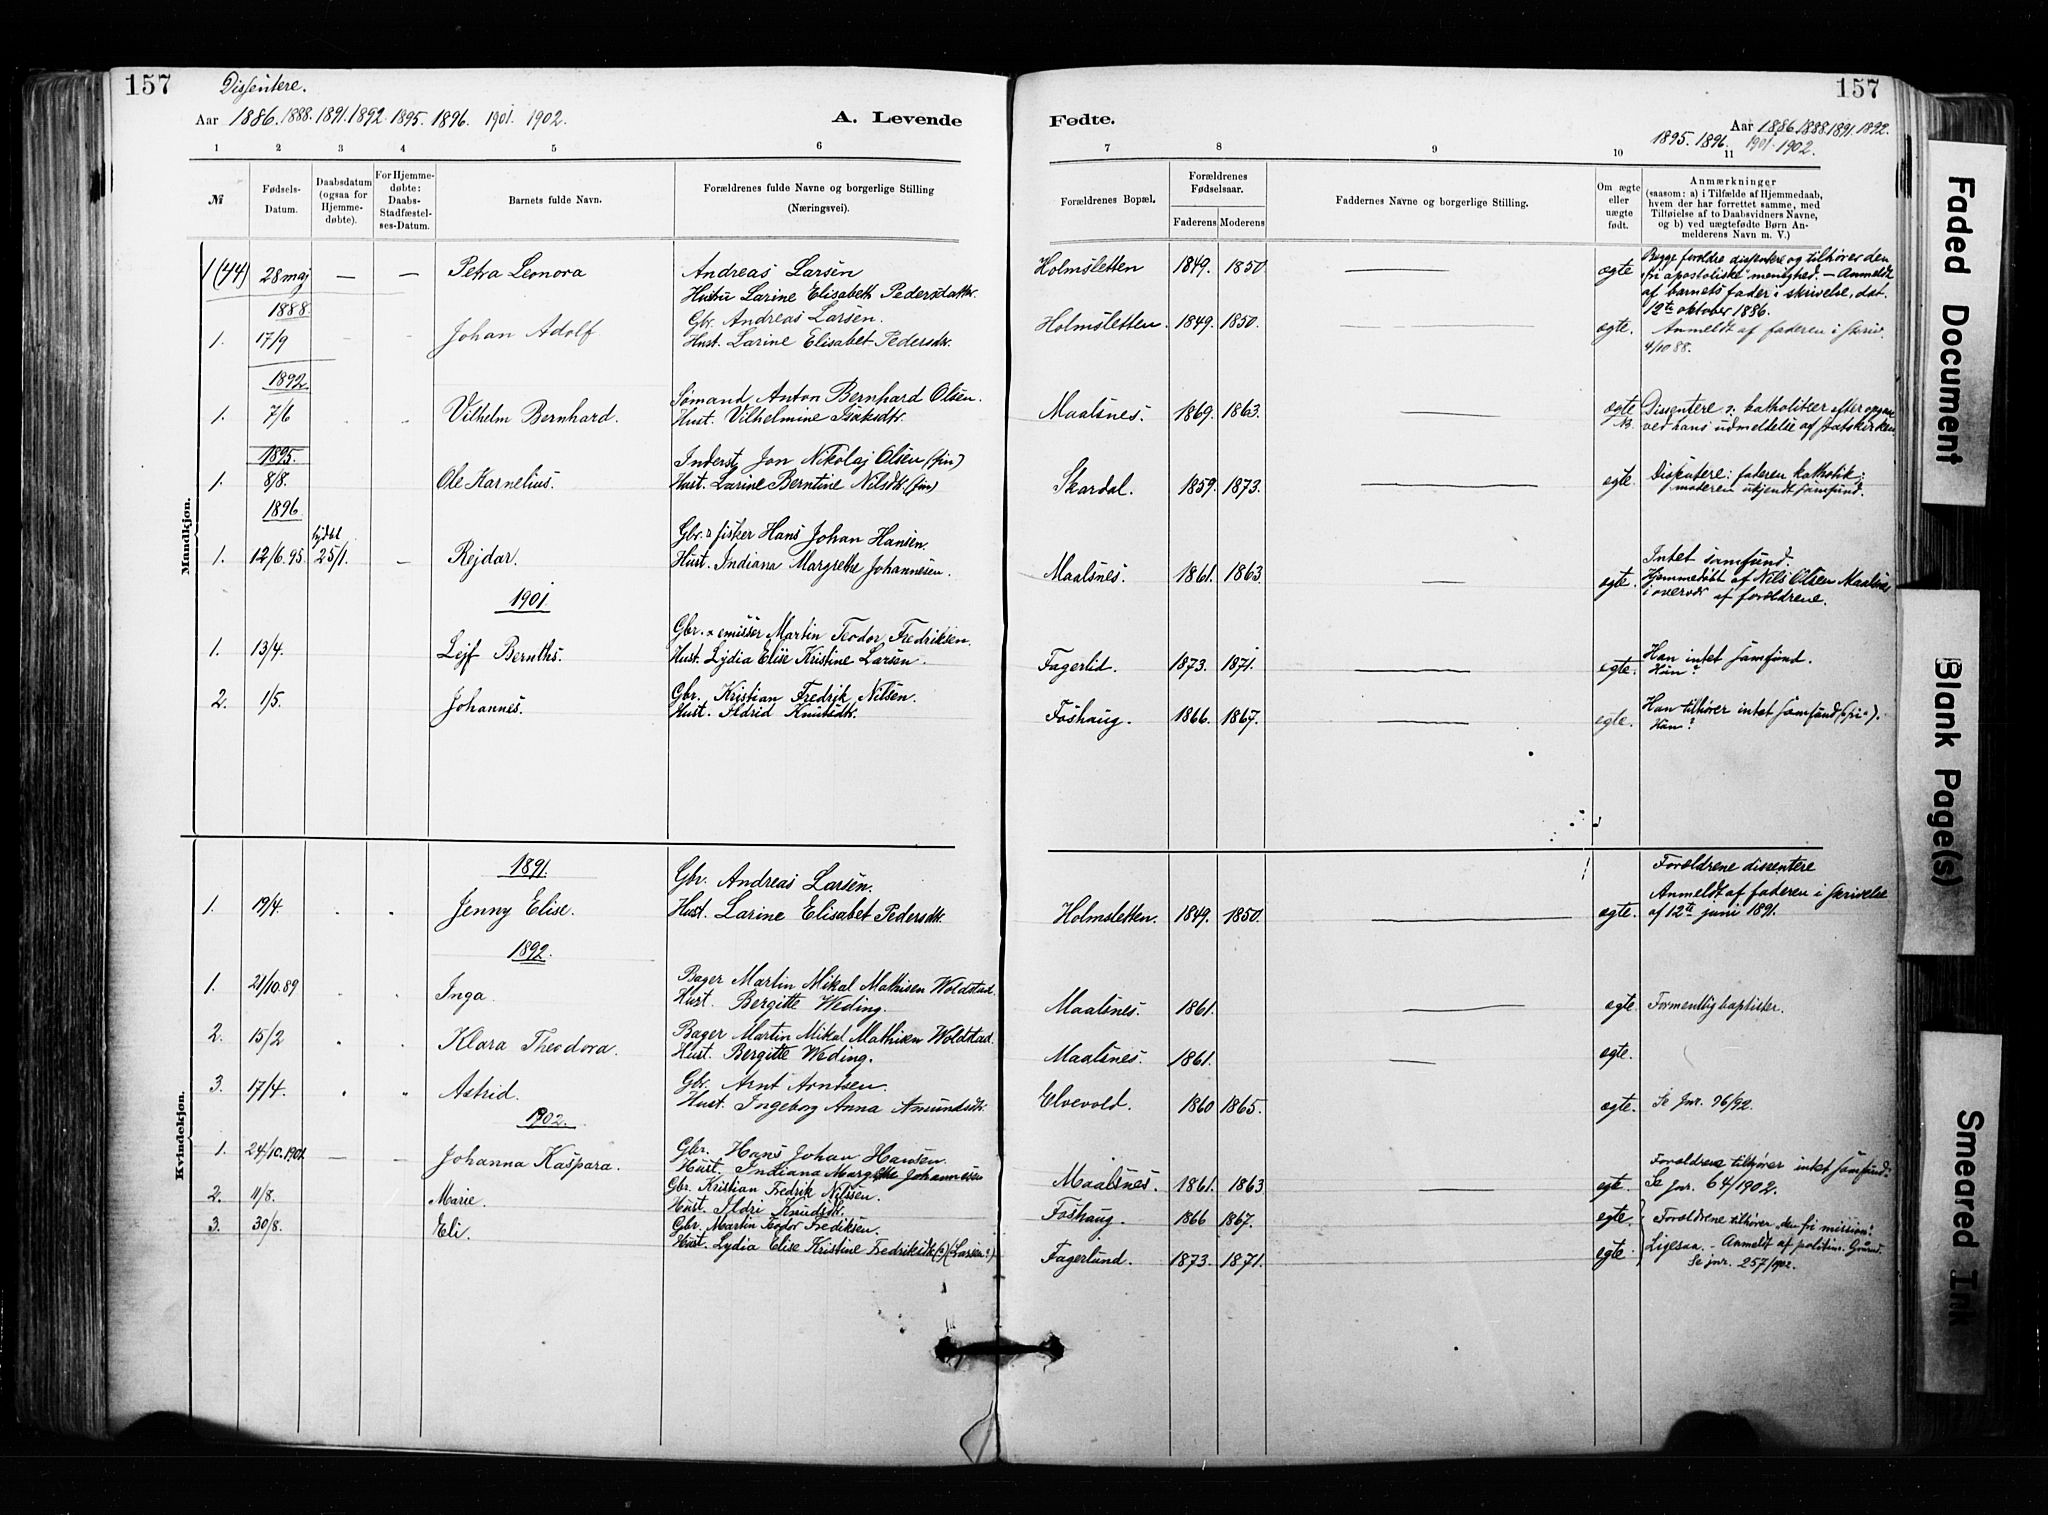 157
Dissentere.
Aar 1886. 1888. 1891. 1892. 1895. 1896. 1901. 1902.
A. Levende
Fødte.
157
Aar 1886. 1888. 1891. 1892.
1895. 1896. 1901. 1902.
1 2 3 4 5 6 7 8 9 10 11
№
Fødsels-Datum.
Daabsdatum (ogsaa for Hjemme-døbte).
For Hjemme-døbte: Daabs-Stadfæstel-ses-Datum.
Barnets fulde Navn.
Forældrenes fulde Navne og borgerlige Stilling (Næringsvei).
Forældrenes Bopæl.
Forældrenes Fødselsaar.
Faderens Moderens
Faddernes Navne og borgerlige Stilling.
Om ægte eller uægte født.
Anmærkninger
(saasom: a) i Tilfælde af Hjemmedaab, hvem der har forrettet samme, med Tilføielse af to Daabsvidners Navne, og b) ved uægtefødte Børn An-melderens Navn m. V.)
Mandkjøn.
1 (44) 28 maj — — Petra Leonora
Andreas Larsen
Hustru Larine Elisabeth Pedersdatter.
Holmsletten 1849. 1850. — ægte
Begge forældre dissentere og tilhører den
"fri apostoliske" menighed. — Anmeldt
af barnets fader i skrivelse, dat.
12te oktober 1886.
1888.
1. 17/9 - - Johan Adolf
Gbr. Andreas Larsen.
Hust. Larine Elisabet Pedersdtr.
Holmsletten. 1849. 1850. — ægte.
Anmeldt af faderen i skriv.
4/10 88.
1892.
1. 7/6 Vilhelm Bernhard.
Sømand Anton Bernhard Olsen.
Hust. Vilhelmine Isaksdtr.
Maalsnes. 1869. 1863. — ægte
Dissentere katholiker efter
ved hans udmeldelse af statskirken.
1895.
1. 8/8. Ole Karnelius.
Inderst Jon Nikolaj Olsen (fin)
Hust. Larine Berntine Nilsdtr. (fin)
Skardal. 1859. 1873. — egte.
Dissentere: faderen katholik;
moderen ukjendt samfund.
1896.
1. 12/6.95 25/1. — Rejdar.
Gbr. & fisker Hans Johan Hansen.
Hust. Indiana Margrethe Johannesen.
Maalsnes. 1861. 1863. — egte.
Intet samfund.
Hjemmedøbt af Nils Olsen Maalsnes
i overvær af forældrene.
1901.
1. 13/4. Lejf
Gbr. & emissær Martin Teodor Fredriksen.
Hust. Lydia Elise Kristine Larsen.
Fagerlid. 1873. 1871. — egte.
Han intet samfund.
Hun?
2. 1/5. Johannes.
Gbr. Kristian Fredrik Nilsen.
Hust. Ildrid Knutsdtr.
Foshaug. 1866. 1867. — egte.
Han tilhører intet samfund ("fri").
Hun?
Kvindekjøn.
1891.
1. 19/4. Jenny Elise.
Gbr. Andreas Larsen.
Hust. Larine Elisabet Pedersdtr.
Holmsletten. 1849. 1850. — ægte.
Forældrene dissentere
Anmeldt af faderen i skrivelse
af 12te juni 1891.
1892.
1. 21/10.89 Inga.
Bager Martin Mikal Mathisen Woldstad.
Hust. Bergitte Weding.
Maalsnes. 1861. — ægte
Formentlig baptister.
2. 15/2 Klara Theodora.
Bager Martin Mikal Mathisen Woldstad.
Hust. Bergitte Weding.
Maalsnes. 1861. — ægte.
3. 17/4. Astrid.
Gbr. Arnt Arntsen.
Hust. Ingeborg Anna Amundsdtr.
Elvevold. 1860 1865. — ægte.
Se Jnr. 96/92.
1902.
1. 24/10.1901. — — Johanna Kaspara.
Gbr. Hans Johan Hansen.
Hust. Indiana Margrethe Johannessen
Maalsnes. 1861. 1863 — egte.
Forældrene tilhører intet samfund.
Se Jnr. 64/1902.
2. 11/8. Marie.
Gbr. Kristian Fredrik Nilssen.
Hust. Ildri Knudsdtr.
Foshaug. 1866 1867. egte.
Forældrene tilhører "den fri mission".
3. 30/8. Eli.
Gbr. Martin Teodor Frediksen.
Hust. Lydia Elise Kristine Fredriksdtr (?) (Larsen?)
Fagerlund. 1873. 1871. egte.
Ligesaa. - Anmeldt af politim. Grund.
Se jnr. 257/1902.
Faded Document
Blank Page(s)
Smeared Ink